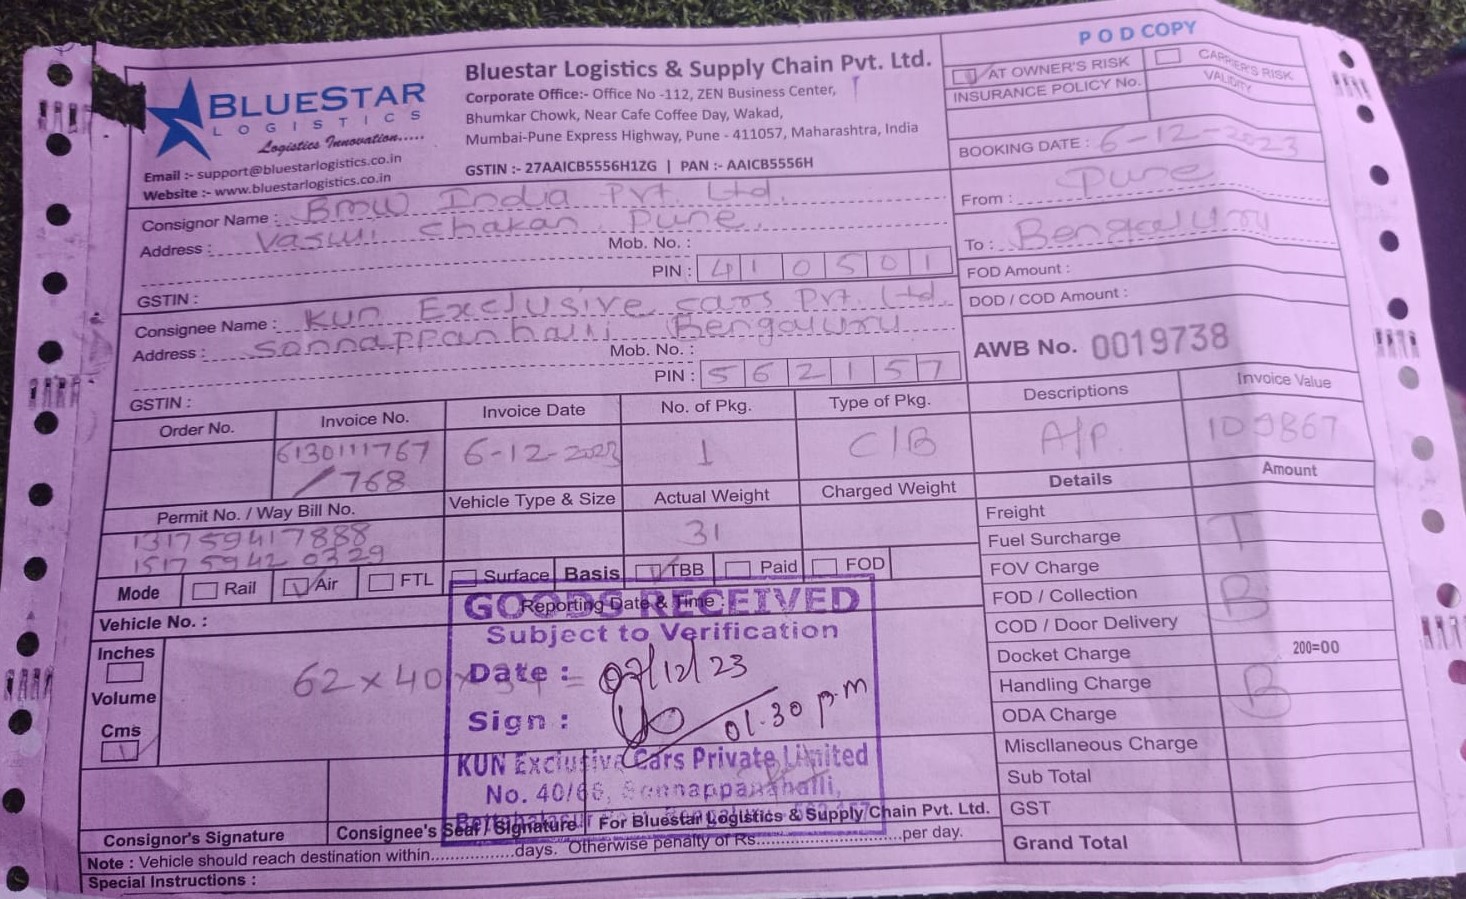 POD COPY
BLUESTAR
LOGISTICS
Logistics Innovation.....
Email :- support@bluestarlogistics.co.in
Website :- www.bluestarlogistics.co.in
Bluestar Logistics & Supply Chain Pvt. Ltd.
Corporate Office:- Office No -112, ZEN Business Center,
Bhumkar Chowk, Near Cafe Coffee Day, Wakad,
Mumbai-Pune Express Highway, Pune - 411057, Maharashtra, India
GSTIN :- 27AAICB5556H1ZG | PAN :- AAICB5556H
AT OWNER'S RISK CARRIER'S RISK
INSURANCE POLICY No. VALIDITY
BOOKING DATE : 6-12-2023
From : Pune
To : Bengaluru
FOD Amount :
DOD / COD Amount :
AWB No. 0019738
Consignor Name : BMW India Pvt. Ltd.
Address : Vasuli Chakan Pune.
Mob. No. :
PIN : 410501
GSTIN :
Consignee Name : Kun Exclusive cars Pvt. Ltd
Address : Sonnappanhalli Bengaluru
Mob. No. :
PIN : 562157
GSTIN :
Order No. Invoice No. Invoice Date No. of Pkg. Type of Pkg. Descriptions Invoice Value
6130111767 6-12-2023 1 C/B A/P. 109867
/768
Permit No. / Way Bill No. Vehicle Type & Size Actual Weight Charged Weight Details Amount
131759417888 31
151759420329
Mode Rail Air FTL Surface Basis TBB Paid FOD
Vehicle No. : Reporting Date & Time :
Inches
Volume
Cms
62 x 40 x
GOODS RECEIVED
Subject to Verification
Date : 07/12/23
Sign : 01.30 pm
KUN Exclusive Cars Private Limited
No. 40/66, Sennappanahalli,
Freight
Fuel Surcharge T
FOV Charge
FOD / Collection B
COD / Door Delivery
Docket Charge 200=00
Handling Charge B
ODA Charge
Miscllaneous Charge
Sub Total
GST
Grand Total
Consignor's Signature Consignee's Seal / Signature For Bluestar Logistics & Supply Chain Pvt. Ltd.
Note : Vehicle should reach destination within................days. Otherwise penalty of Rs............................per day.
Special Instructions :